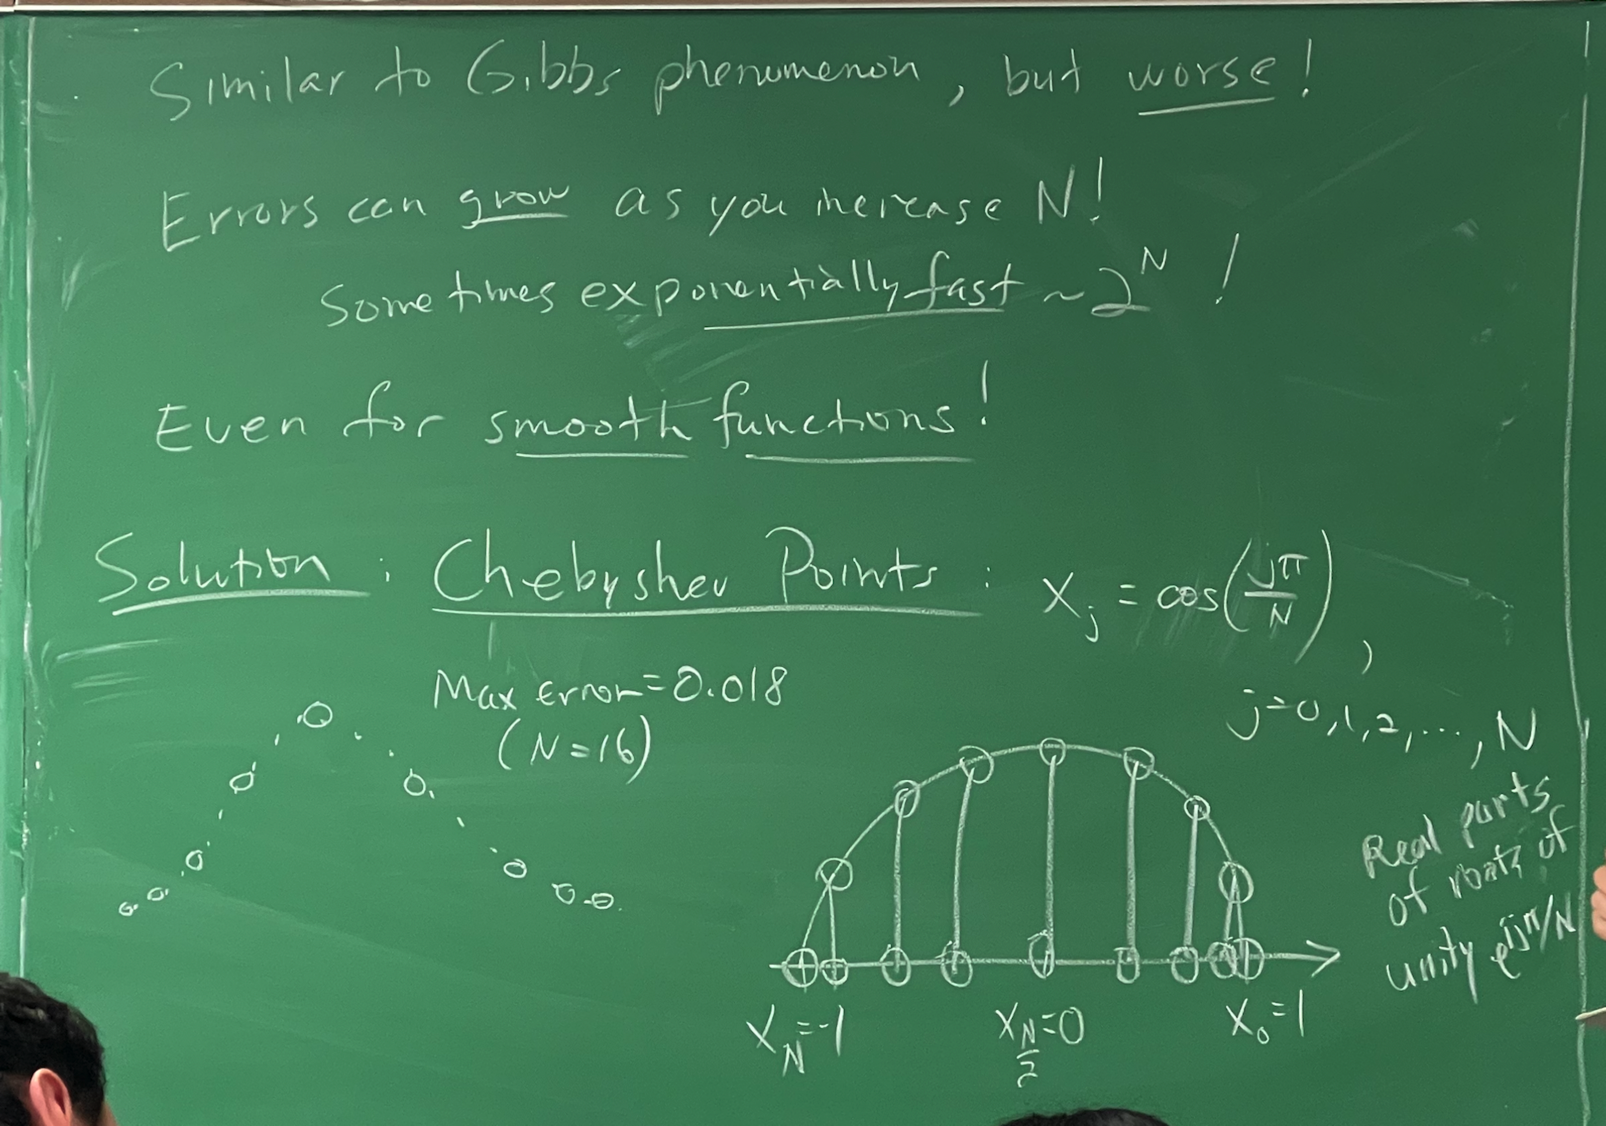 Similar to Gibbs phenomenon, but worse!
Errors can grow as you increase N!
Sometimes exponentially fast ~2^N !
Even for smooth functions!
Solution : Chebyshev Points : X_j = cos(jπ/N) ,
j=0,1,2,...,N
Max Error=0.018
(N=16)
Real parts
of roots of
unity e^{ijπ/N}
X_N=-1
X_{N/2}=0
X_0=1